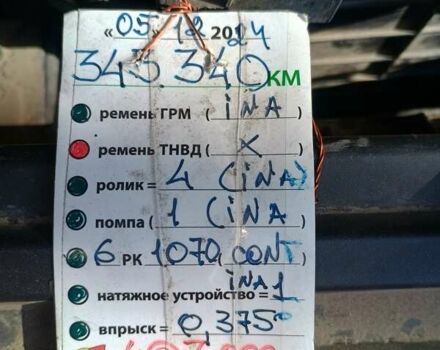 « 05 » 12 2024
345.340 КМ
ремень ГРМ ( INA )
ремень ТНВД ( X )
ролик = 4 (INA)
помпа ( 1 (INA
6 РК 1070( CONT )
INA
натяжное устройство = 1
впрыск = 0,375°